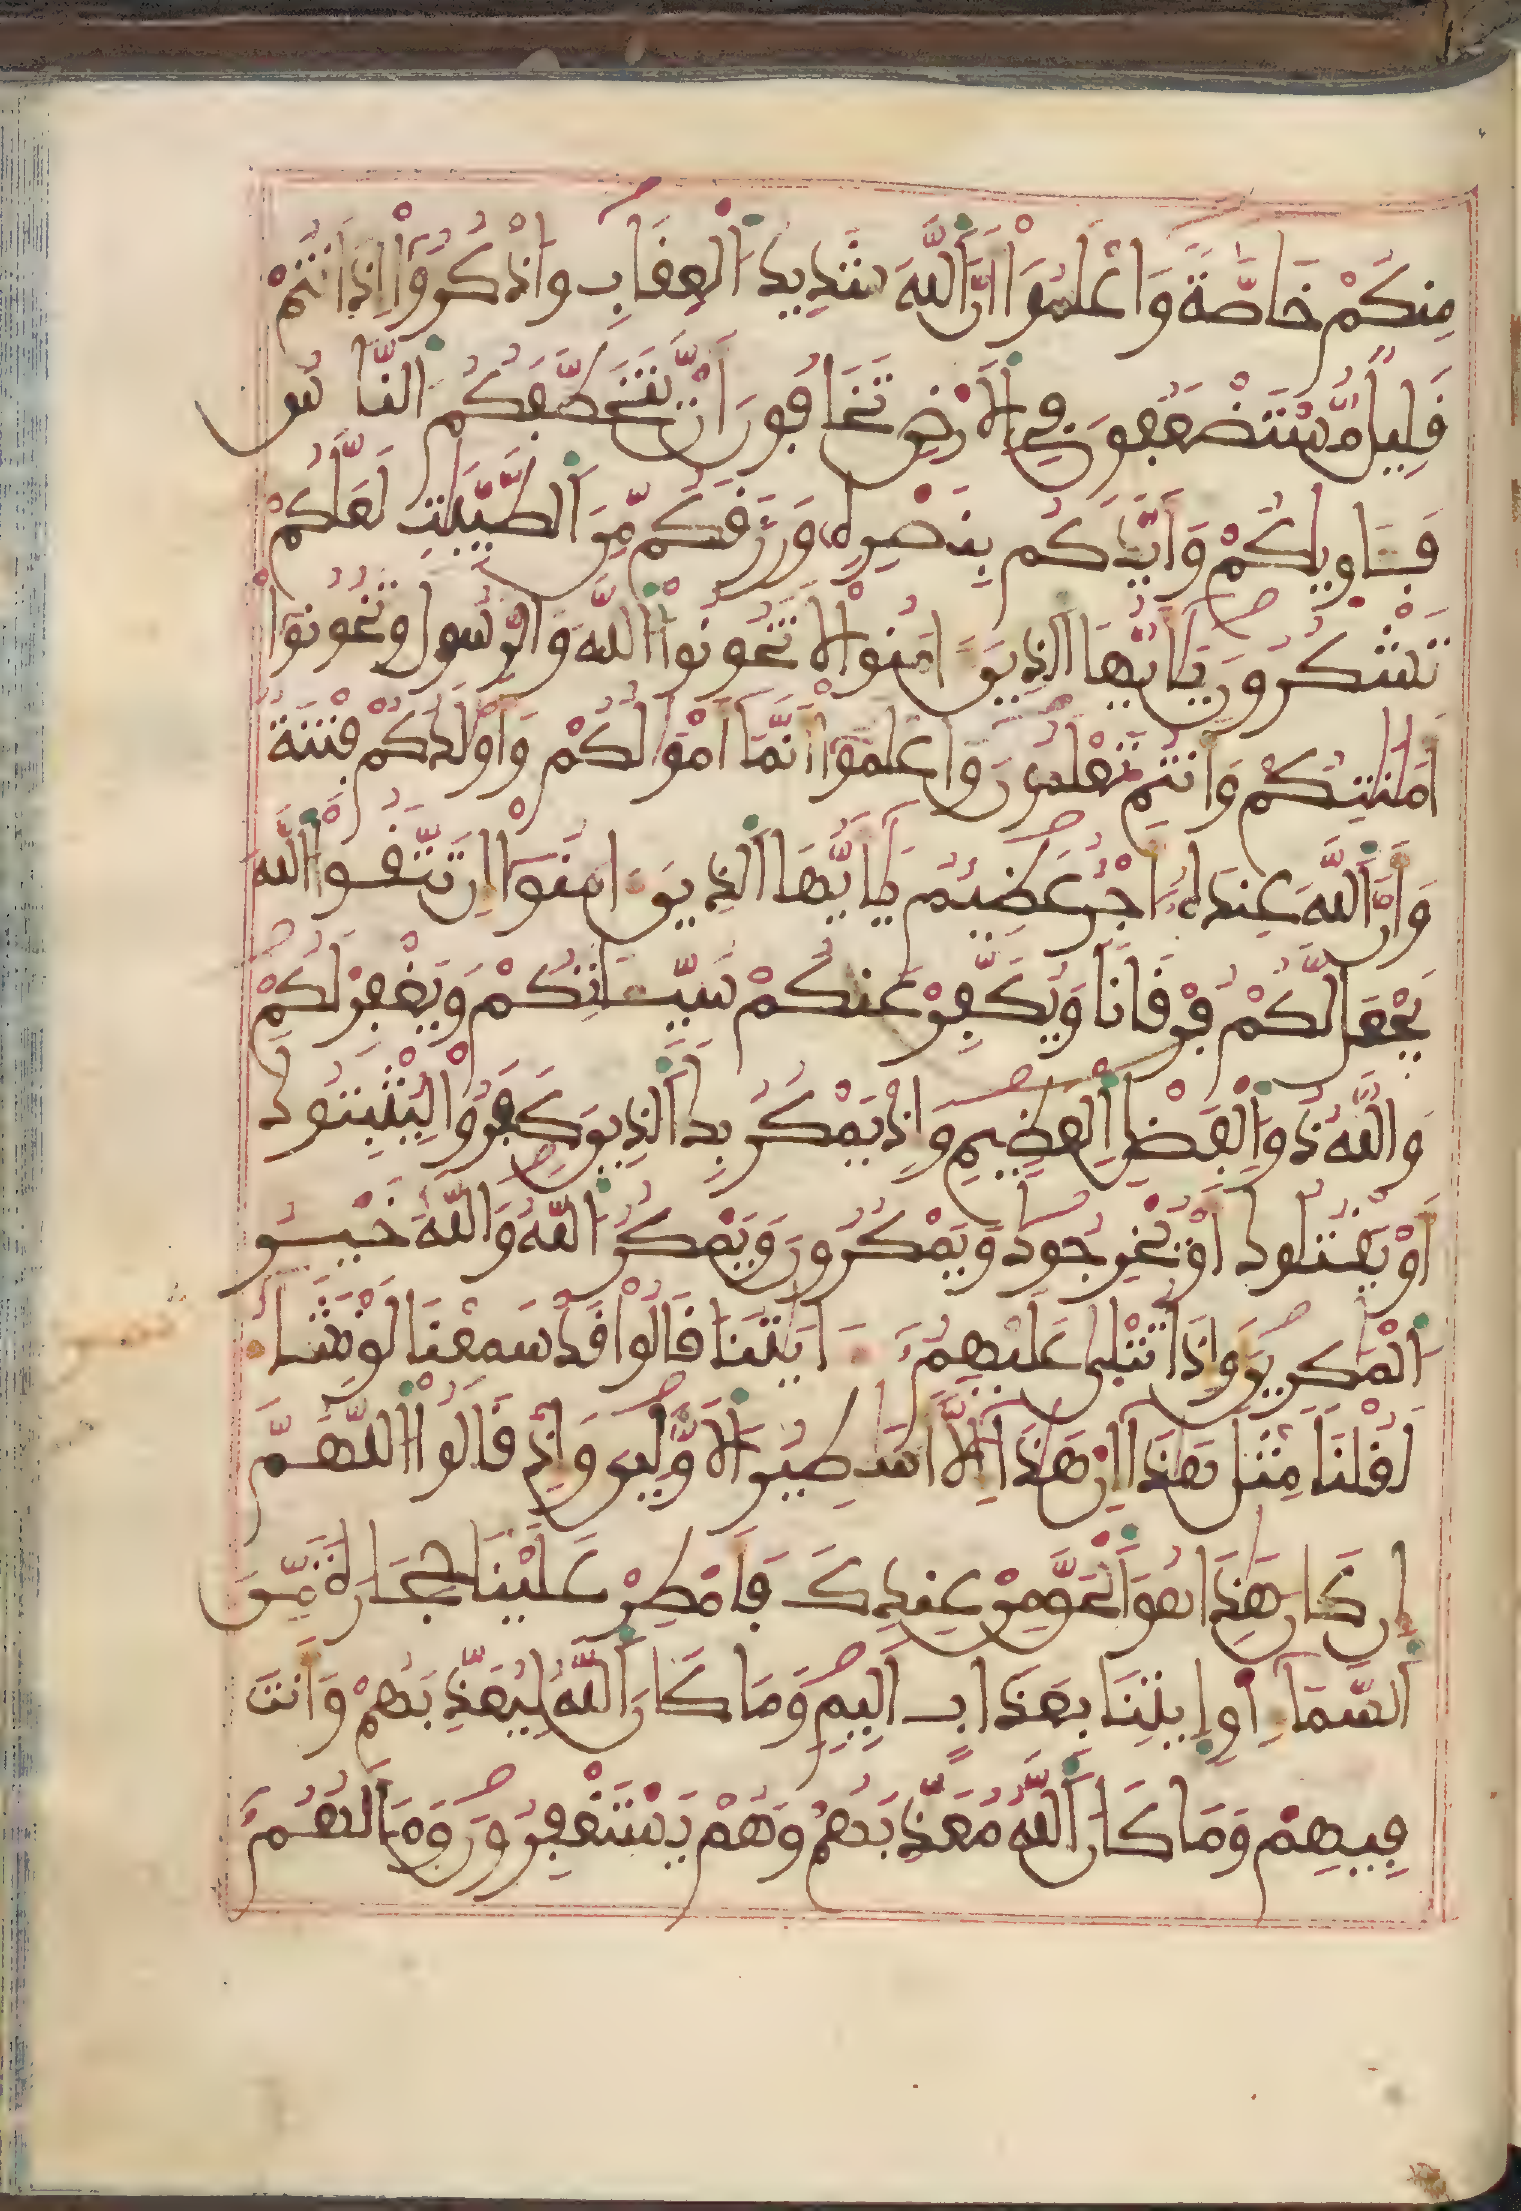 مِنكُمْ خَاصَّةً وَاعْلَمُوٓا أَنَّ اَللَّهَ شَدِيدُ اُلْعِقَابِ وَاذْكُرُوٓا إِذَ اَنتُمْ
قَلِيلٌ مُّسْتَضْعَفُونَ فِي اِلَارْضِ تَخَافُونَ أَنْ يَّتَخَطَّفَكُمُ اُلنَّاسُ
فَـَٔاوِيٰكُمْ وَأَيَّدَكُم بِنَصْرِهِ وَرَزَقَكُم مِّنَ اَلطَّيِّبَٰتِ لَعَلَّكُمْ
تَشْكُرُونَ يَٰٓأَيُّهَا اَلذِينَ ءَامَنُوا لَا تَخُونُوا اُللَّهَ وَالرَّسُولَ وَتَخُونُوٓا
أَمَٰنَٰتِكُمْ وَأَنتُمْ تَعْلَمُونَ وَاعْلَمُوٓا أَنَّمَآ أَمْوَٰلُكُمْ وَأَوْلَٰدُكُمْ فِتْنَةٌ
وَأَنَّ اَللَّهَ عِندَهُ أَجْرٌ عَظِيمٌ يَٰٓأَيُّهَا اَلذِينَ ءَامَنُوٓا إِن تَتَّقُوا اُللَّهَ
يَجْعَل لَّكُمْ فُرْقَانًا وَيُكَفِّرْ عَنكُمْ سَيِّـَٔاتِكُمْ وَيَغْفِرْ لَكُمْ
وَاللَّهُ ذُو اُلْفَضْلِ اِلْعَظِيمِ وَإِذْ يَمْكُرُ بِكَ اَلذِينَ كَفَرُوا لِيُثْبِتُوكَ
أَوْ يَقْتُلُوكَ أَوْ يُخْرِجُوكَ وَيَمْكُرُونَ وَيَمْكُرُ اُللَّهُ وَاللَّهُ خَيْرُ
اُلْمَٰكِرِينَ وَإِذَا تُتْلَىٰ عَلَيْهِمُۥٓ ءَايَٰتُنَا قَالُوا قَدْ سَمِعْنَا لَوْ نَشَآءُ
لَقُلْنَا مِثْلَ هَٰذَآ إِنْ هَٰذَآ إِلَّآ أَسَٰطِيرُ اُلَاوَّلِينَ وَإِذْ قَالُوا اُللَّهُمَّ
إِن كَانَ هَٰذَا هُوَ اَلْحَقَّ مِنْ عِندِكَ فَأَمْطِرْ عَلَيْنَا حِجَارَةً مِّنَ
اَلسَّمَآءِ أَوِ ايتِنَا بِعَذَابٍ أَلِيمٍ وَمَا كَانَ اَللَّهُ لِيُعَذِّبَهُمْ وَأَنتَ
فِيهِمْ وَمَا كَانَ اَللَّهُ مُعَذِّبَهُمْ وَهُمْ يَسْتَغْفِرُونَ وَمَا لَهُمُۥٓ